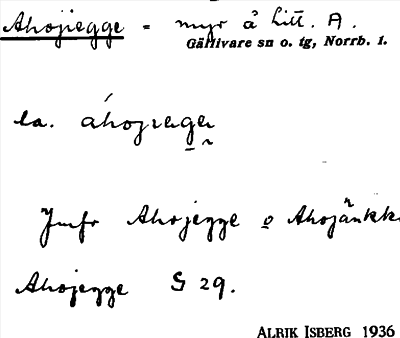 Ahojiegge = myr å litt. A.
Gällivare sn o. tg, Norrb. l.
la. áhojiegər
Jmfr Ahojegge o Ahojänkk
Ahojegge S 29.
ALRIK ISBERG 1936